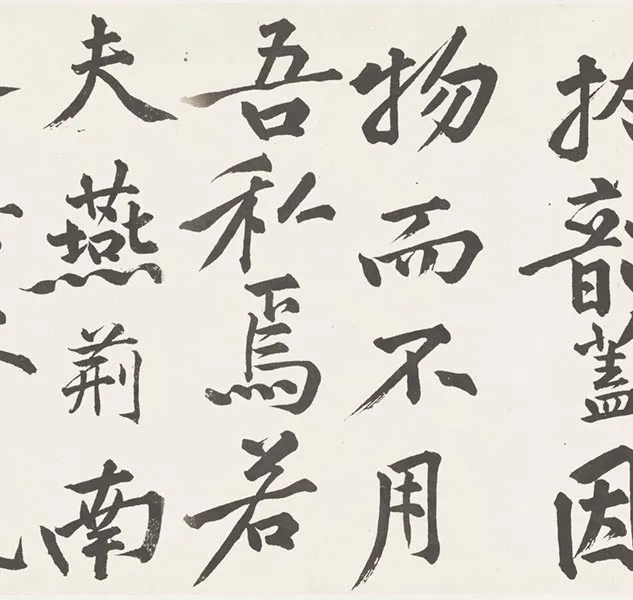 於韻蓋因
物而不用
吾私焉若
夫燕荊南